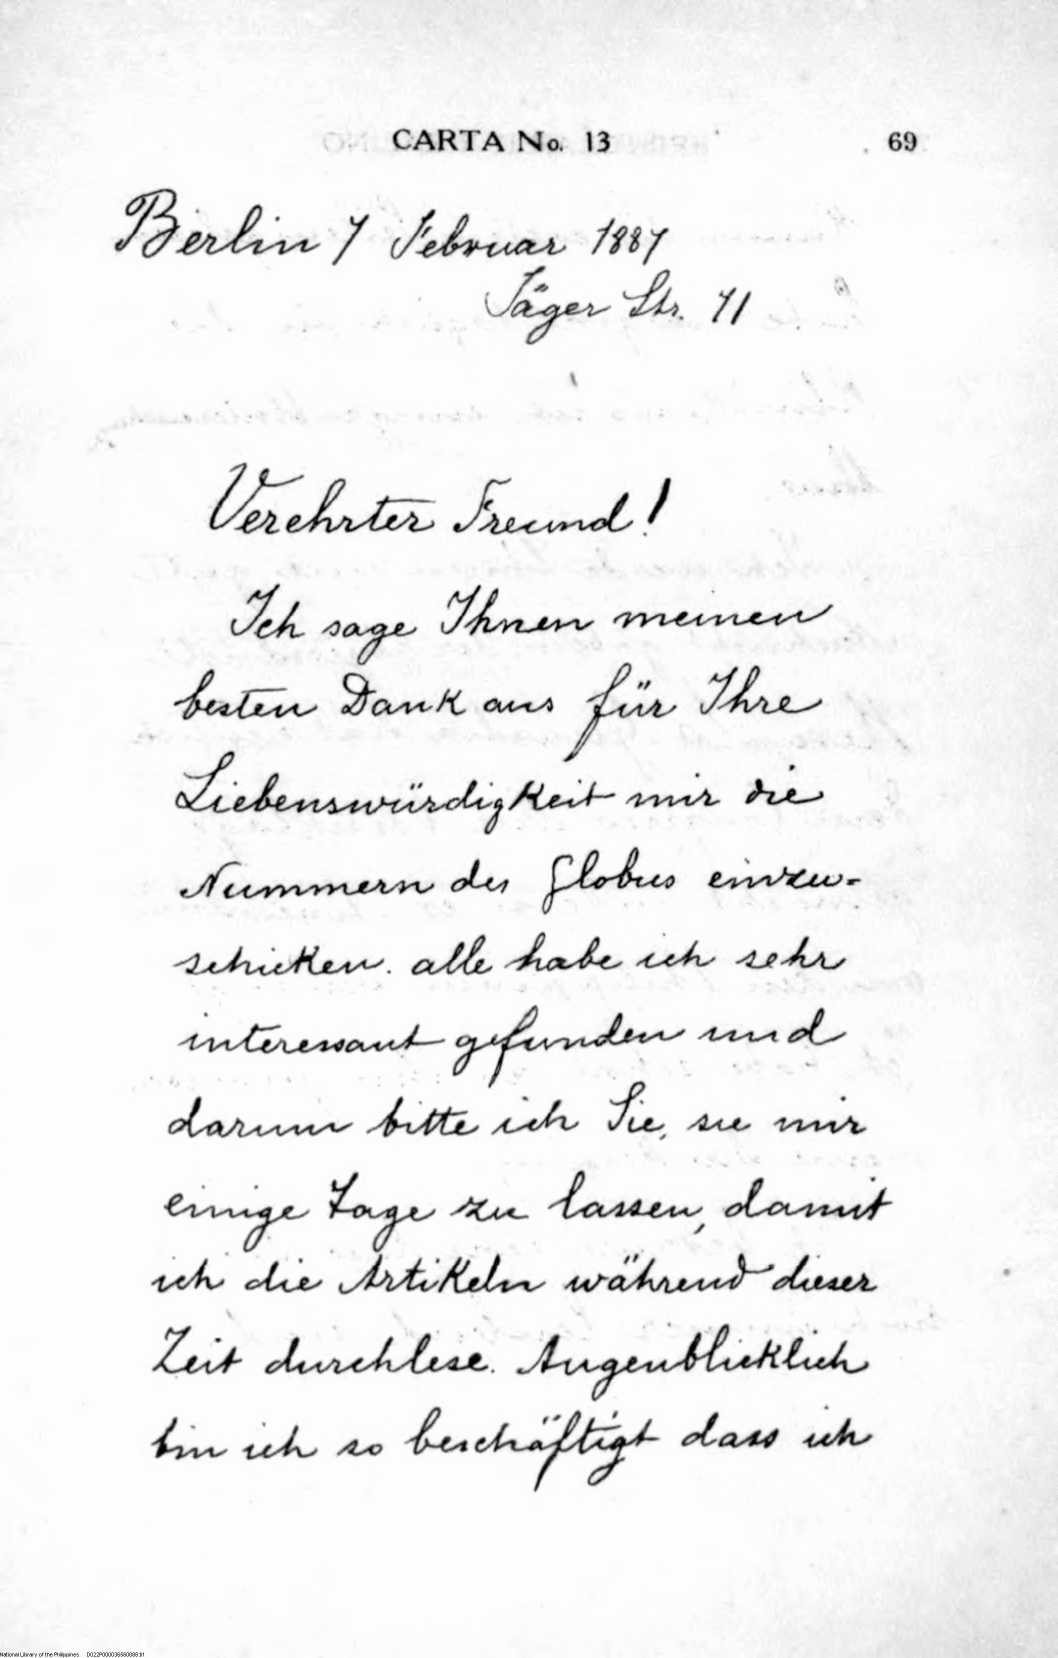 CARTA No. 13
69
Berlin 7 Februar 1887
Jäger Str. 71
Verehrter Freund!
Ich sage Ihnen meinen
besten Dank aus für Ihre
Liebenswürdigkeit mir die
Nummern des Globus einzu-
schicken. alle habe ich sehr
interessant gefunden und
darum bitte ich Sie, sie mir
einige Tage zu lassen, damit
ich die Artikeln während dieser
Zeit durchlese. Augenblicklich
bin ich so beschäftigt dass ich
National Library of the Philippines